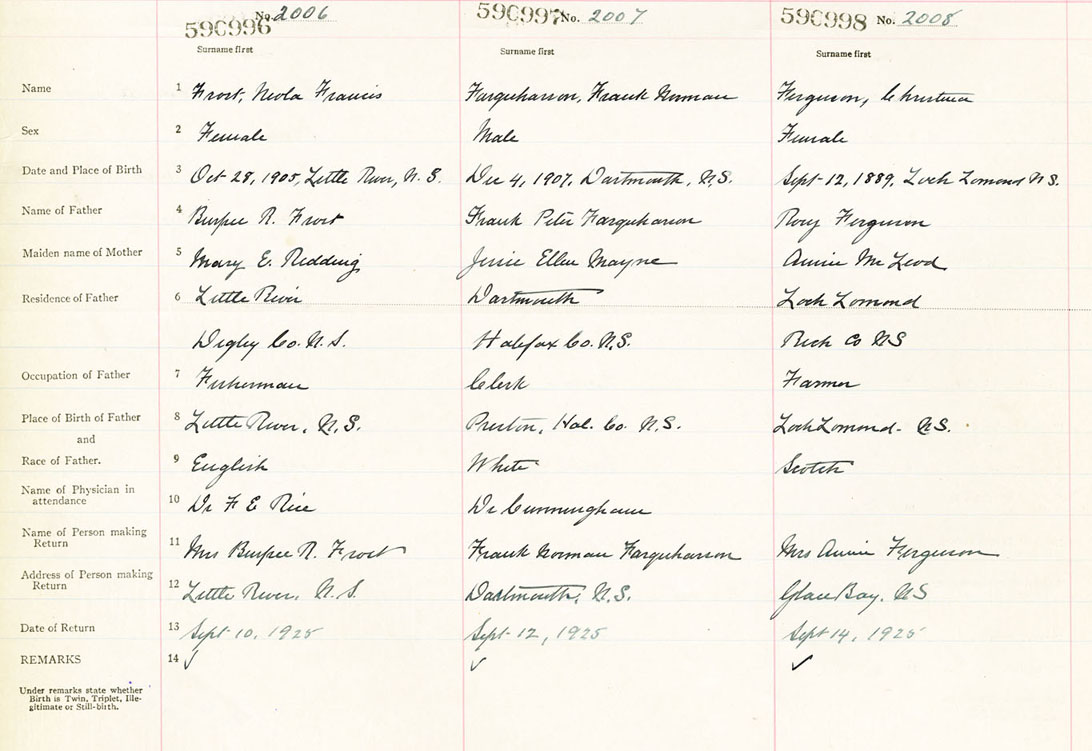 590996 No. 2006 590997 No. 2007 590998 No. 2008
Surname first Surname first Surname first
Name 1 Frost, Neola Francis Farquharson, Frank Norman Ferguson, Christina
Sex 2 Female Male Female
Date and Place of Birth 3 Oct 28, 1905, Little River, N.S. Dec 4, 1907, Dartmouth, N.S. Sept 12, 1889, Loch Lomond N.S.
Name of Father 4 Burpee R. Frost Frank Peter Farquharson Rory Ferguson
Maiden name of Mother 5 Mary E. Redding Jessie Ellen Mayne Annie McLeod
Residence of Father 6 Little River Dartmouth Loch Lomond
Digby Co. N.S. Halifax Co. N.S. Rich Co NS
Occupation of Father 7 Fisherman Clerk Farmer
Place of Birth of Father 8 Little River, N.S. Preston, Hal. Co. N.S. Loch Lomond - N.S.
and
Race of Father. 9 English White Scotch
Name of Physician in
attendance 10 Dr F E Rice Dr Cunningham
Name of Person making
Return 11 Mrs Burpee R. Frost Frank Norman Farquharson Mrs Annie Ferguson
Address of Person making
Return 12 Little River, N.S. Dartmouth, N.S. Glace Bay, NS
Date of Return 13 Sept 10, 1925 Sept 12, 1925 Sept 14, 1925
REMARKS 14 ✓ ✓ ✓
Under remarks state whether
Birth is Twin, Triplet, Ille-
gitimate or Still-birth.